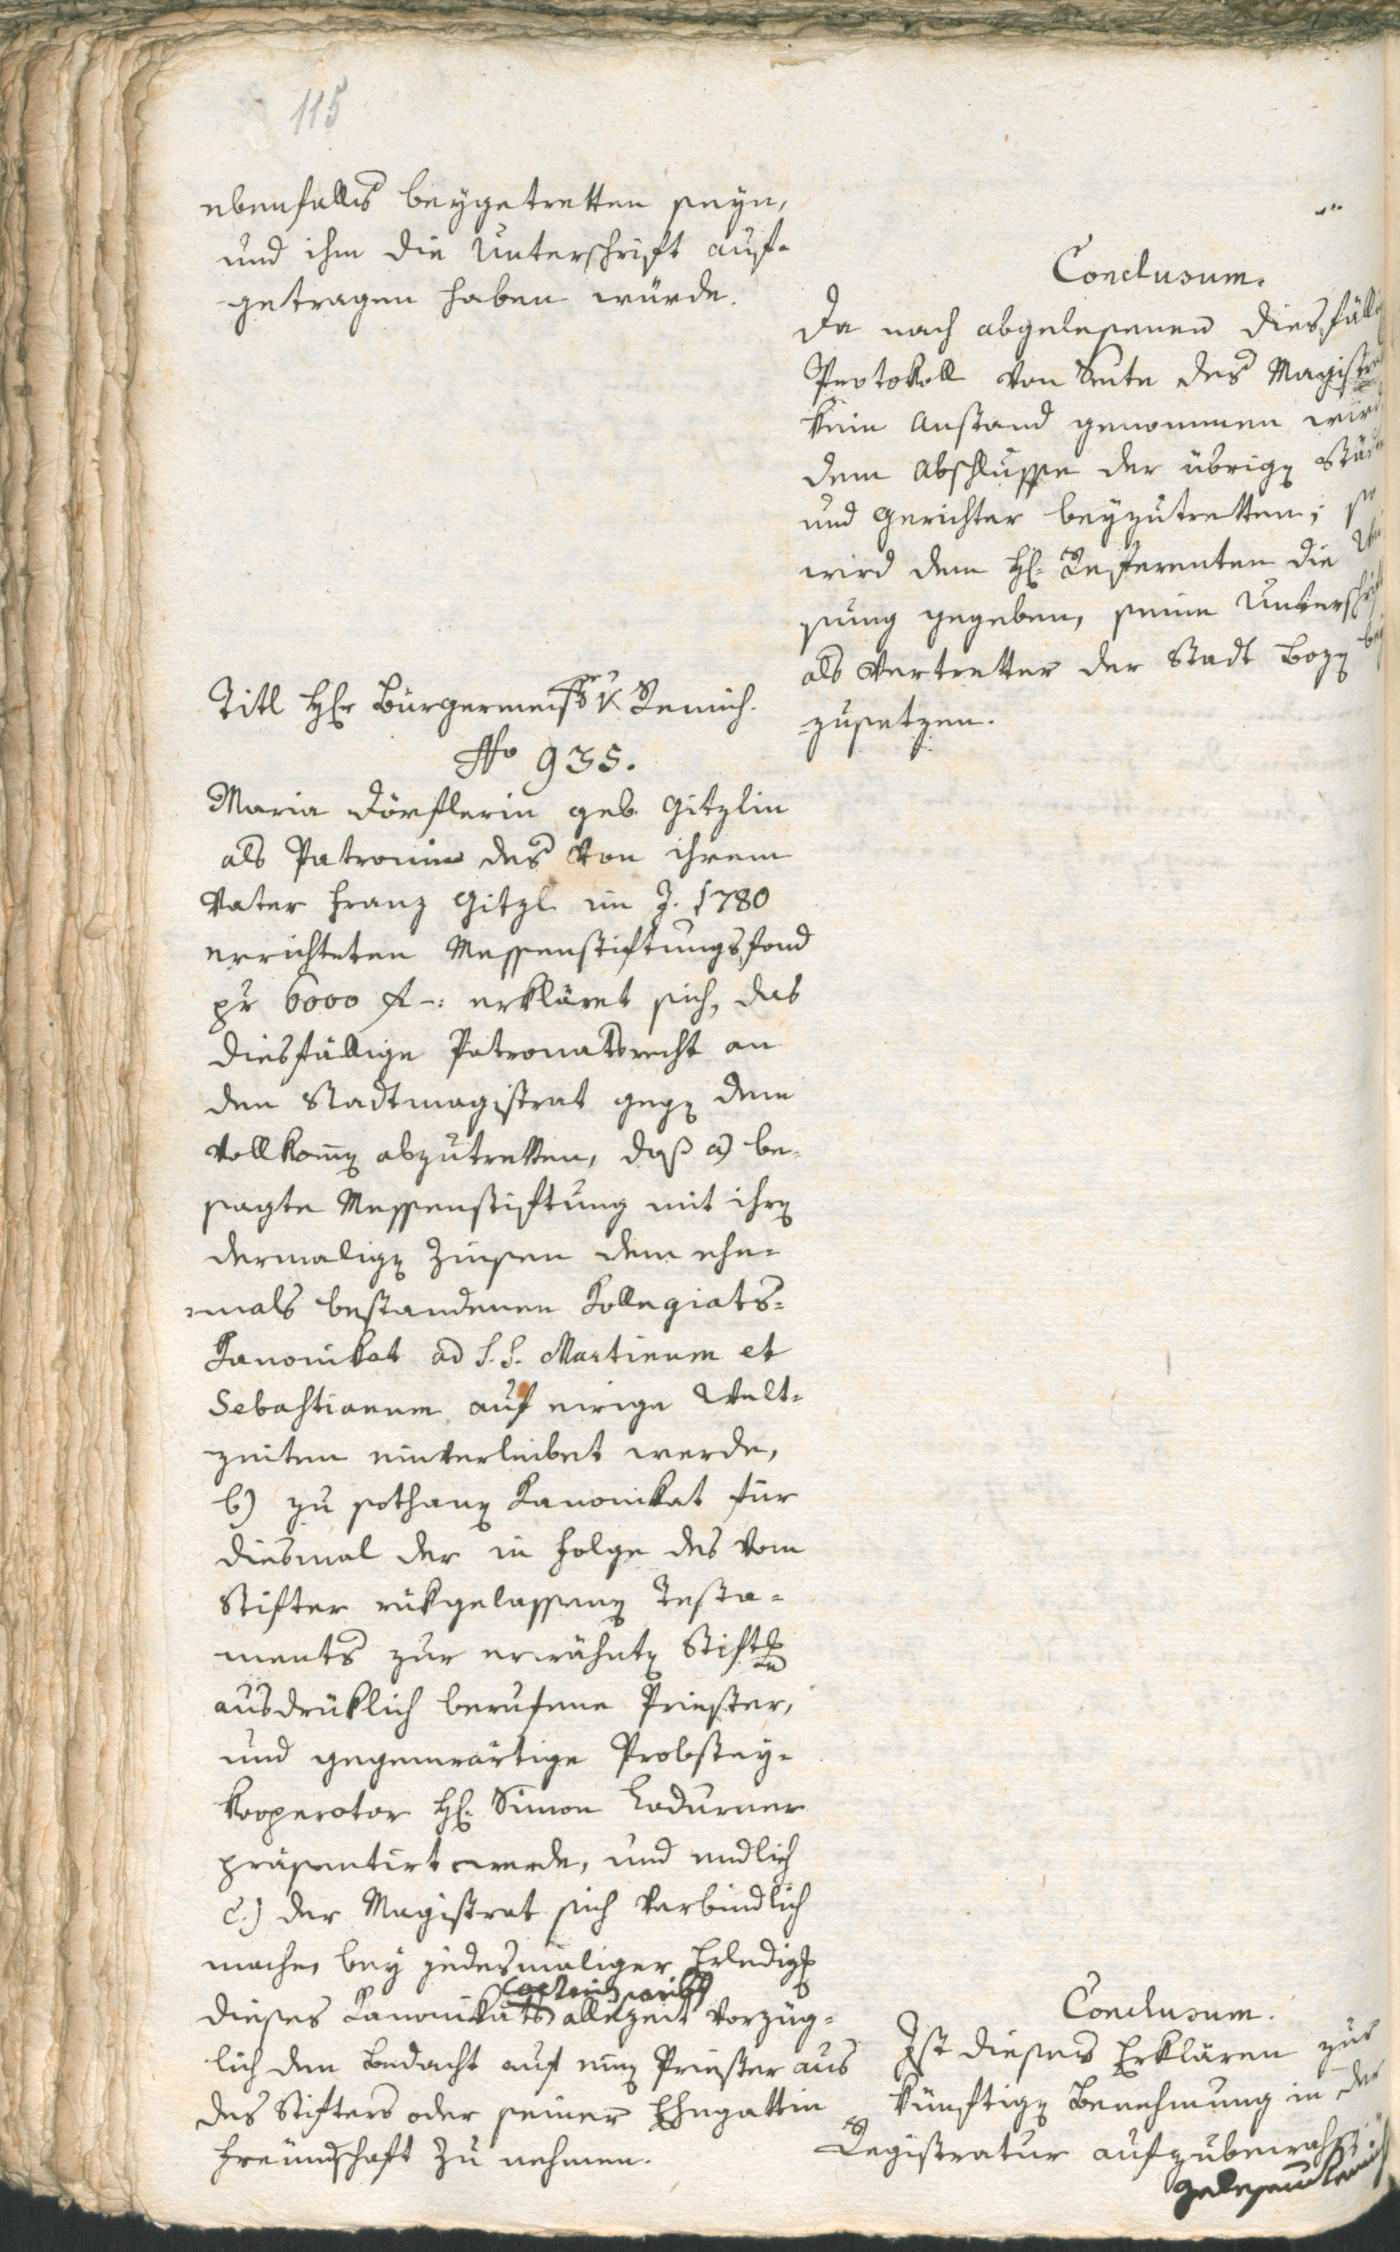 115
ebenfalls beygetretten seyn,
und ihm die Unterschrift auf-
getragen haben würde.
Conclusum.
Da nach abgelesenen diesfäll
Protokoll von Seite des Magistra
kein Anstand genommen wird
dem Abschlusse der übrigen Städ
und Gerichter beyzutretten; so
wird dem H: Referenten die
sung gegeben, seine Unterschrift
als Vertretter der Stadt Bozen bey
-zusetzen.
Titl Hr Bürgermeister v Remich.
No 935.
Maria Dörflerin geb. Gitzlin
als Patronin des von ihrem
Vater Franz Gitzl im J. 1780
errichteten Messenstiftungsfond
pr 6000 f -: erkläret sich, das
diesfällige Patronatsrecht an
den Stadtmagistrat gegen dem
vollkomen abzutretten, daß a) be-
sagte Messenstiftung mit ihren
dermaligen Zinsen dem ehe-
-mals bestandenen Kollegiats-
Kanonikat ad S. S. Martinum et
Sebastianum auf ewige Welt-
zeiten einverleibet werde,
b) zu sothanen Kanonikat für
diesmal der in Folge des vom
Stifter rükgelassenen Testa-
ments zur erwähnten Stiftung
ausdrüklich berufene Priester,
und gegenwärtige Probstey-
kooperator H: Simon Ladurner
präsentirt werde, und endlich
c.) der Magistrat sich verbindlich
mache, bey jedesmaliger Erledigung
dieses Kanonikats allezeit vorzüg-
lich den Bedacht auf einen Priester aus
des Stifters oder seiner Ehegattin
Freundschaft zu nehmen.
Conclusum.
Ist dieses Erklären zur
künftigen Benehmung in der
Registratur aufzubewahren
gelesen Remich